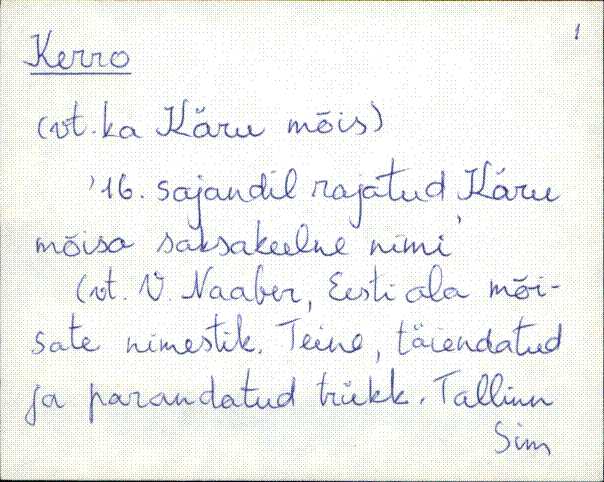 1
Kerro
(vt. ka Käru mõis)
'16. sajandil rajatud Käru
mõisa saksakeelne nimi'
(vt. V. Naaber, Eesti ala mõi-
sate nimestik. Teine, täiendatud
ja parandatud trükk. Tallinn
Sim